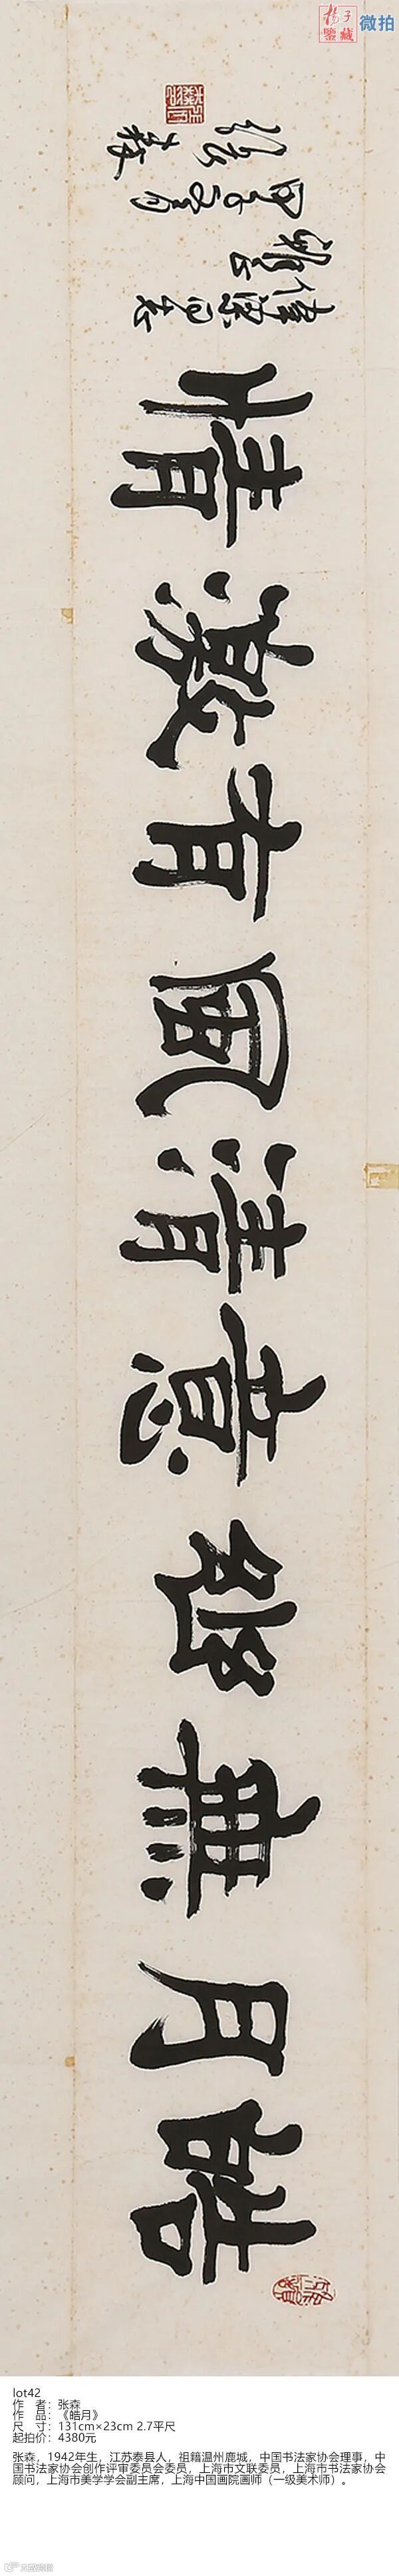 子
鑒藏
微拍
皓月無幽意清風有激情
同志
甲子
張森
lot42
作 者：张森
作 品：《皓月》
尺 寸：131cm×23cm 2.7平尺
起拍价：4380元
张森，1942年生，江苏泰县人，祖籍温州鹿城，中国书法家协会理事，中
国书法家协会创作评审委员会委员，上海市文联委员，上海市书法家协会
顾问，上海市美学学会副主席，上海中国画院画师（一级美术师）。